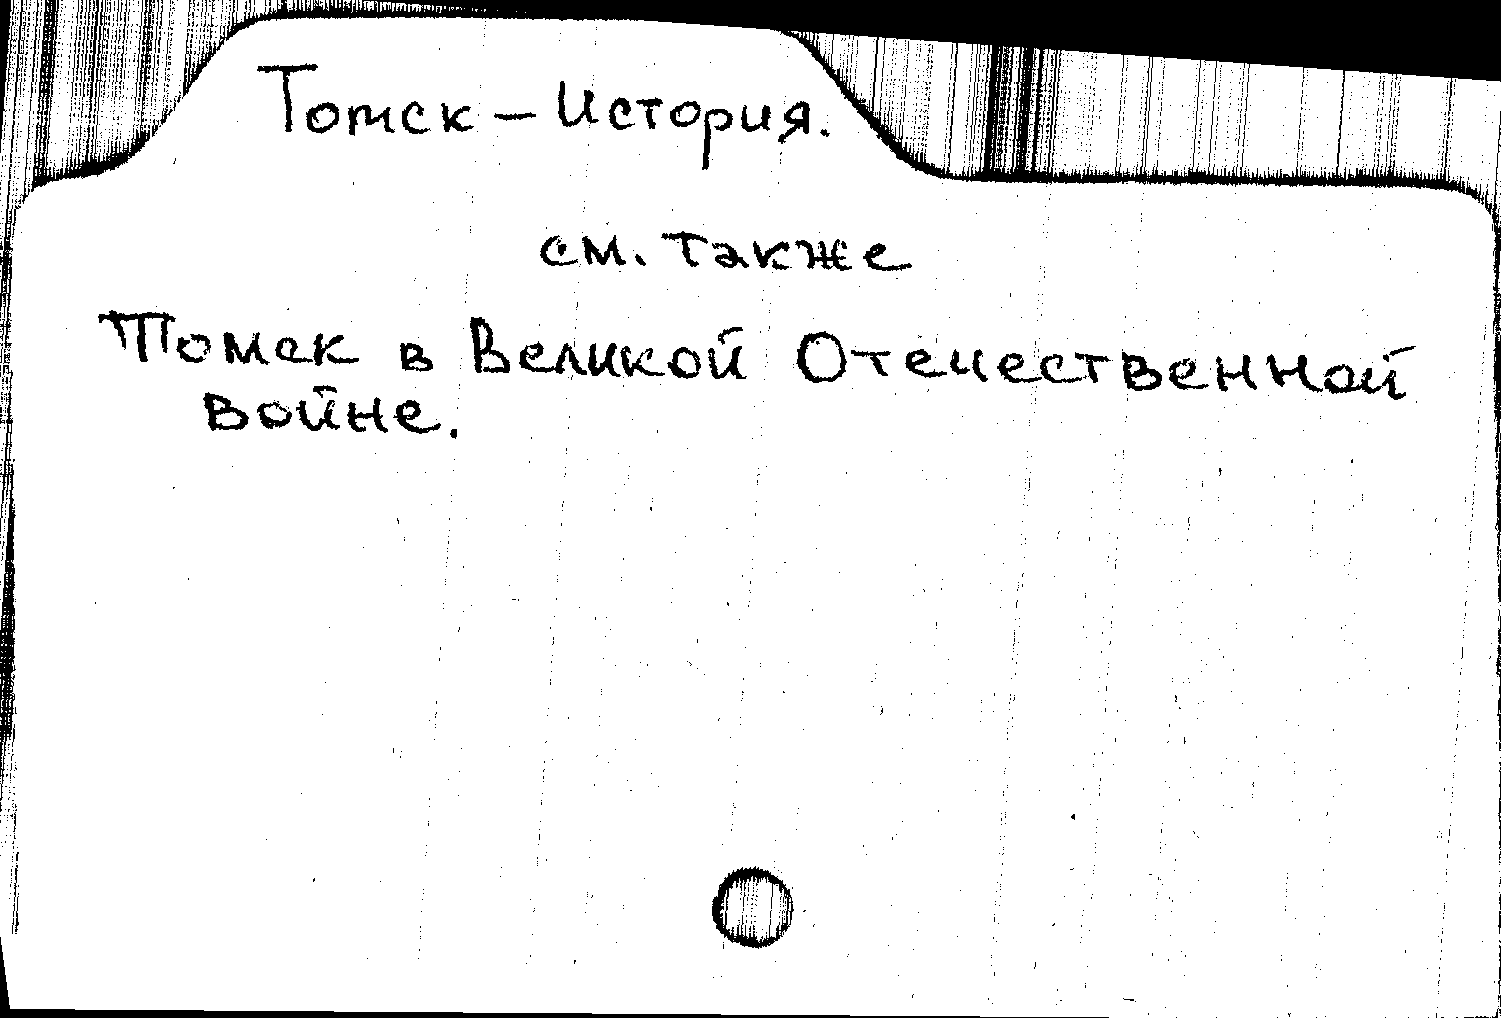 Томск – История.
см. также
Томск в Великой Отечественной
войне.